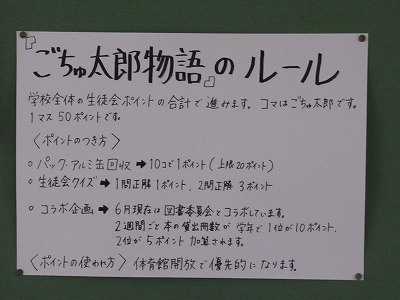 『ごちゅ太郎物語』のルール
学校全体の生徒会ポイントの合計で進みます。コマはごちゅ太郎です。
1マス50ポイントです。
〈ポイントのつき方〉
○パック・アルミ缶回収➡10コで1ポイント(上限20ポイント)
○生徒会クイズ➡1問正解1ポイント、2問正解3ポイント
○コラボ企画➡6月現在は図書委員会とコラボしています。
2週間ごと本の貸出冊数が学年で1位が10ポイント、
2位が5ポイント加算されます。
〈ポイントの使われ方〉体育館開放で優先的になります。